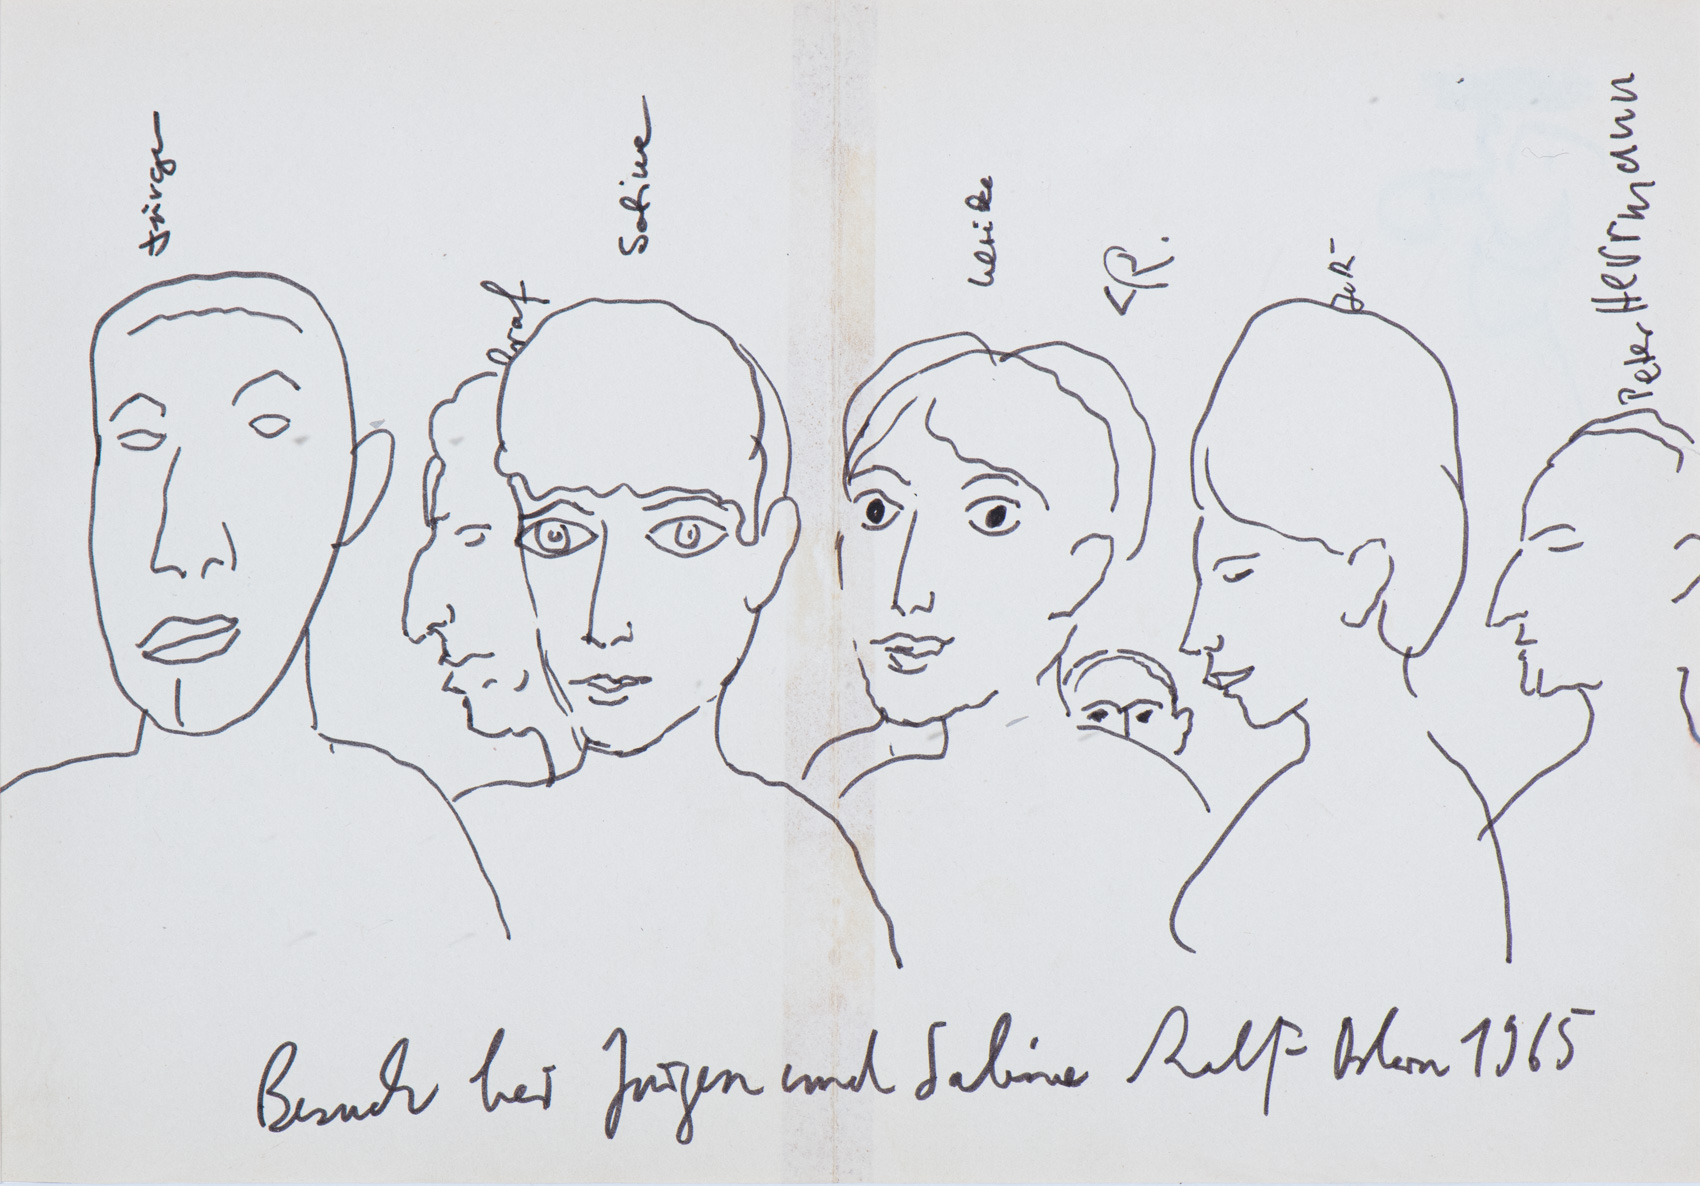 Jürgen
Sabine
Ulrike
<R.
Peter Herrmann
Besuch bei Jürgen und Sabine Ralf Ostern 1965